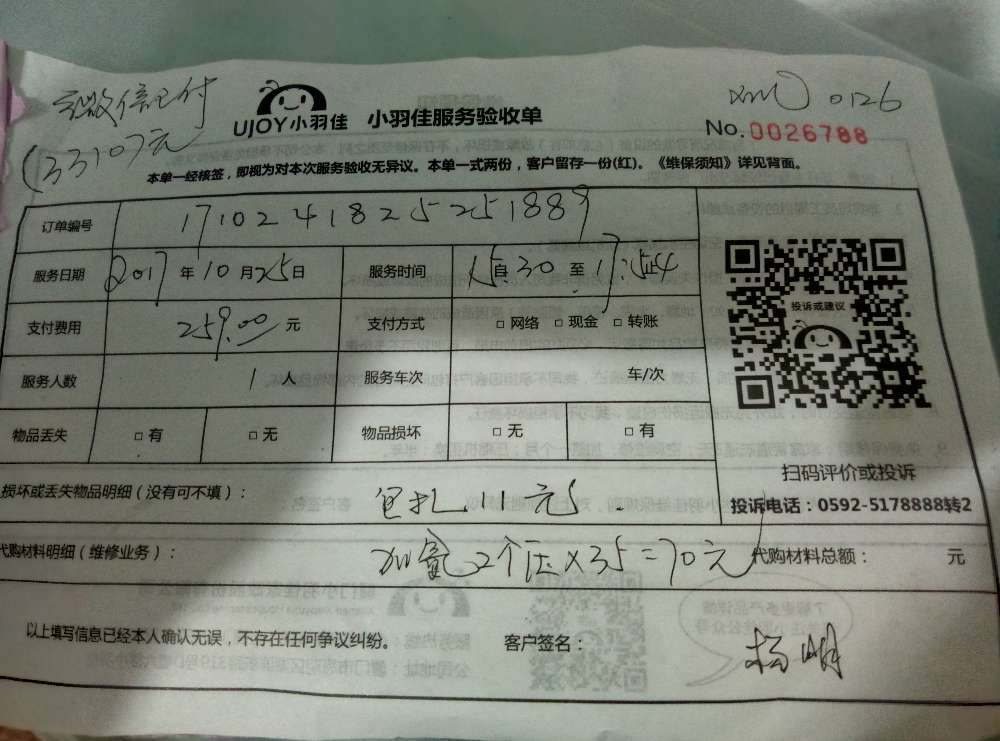 微信已付
xm 0126
(331.07元
UJOY小羽佳 小羽佳服务验收单
No. 0026788
本单一经核签，即视为对本次服务验收无异议。本单一式两份，客户留存一份(红)。《维保须知》详见背面。
订单编号 1710241825251889
服务日期 2017 年 10 月 25 日 服务时间 15 自 30 至 17:54
支付费用 259.00 元 支付方式 □ 网络 □ 现金 □ 转账
投诉或建议
服务人数 1 人 服务车次 车/次
物品丢失 □ 有 □ 无 物品损坏 □ 无 □ 有
扫码评价或投诉
损坏或丢失物品明细（没有可不填）： 包扎 11元
投诉电话：0592-5178888转2
代购材料明细（维修业务）： 加氟2个压×35=70元 代购材料总额： 元
以上填写信息已经本人确认无误，不存在任何争议纠纷。 客户签名： 杨明